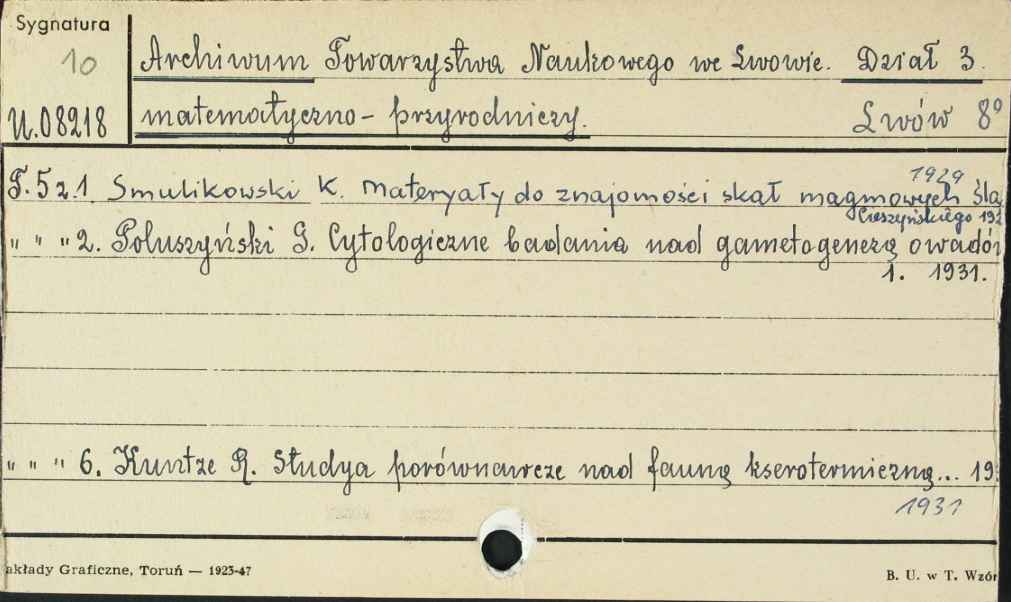 Sygnatura
10
U.08218
Archiwum Towarzystwa Naukowego we Lwowie. Dział 3.
matematyczno - przyrodniczy. Lwów 8°
1929
T. 5 z. 1 Smulikowski K. Materyały do znajomości skał magmowych Ślą
Cieszyńskiego 192
" " " 2. Poluszyński G. Cytologiczne badania nad gametogenezą owadów
1. 1931.
" " " 6. Kuntze R. Studya porównawcze nad fauną kserotermiczną... 19
1931
akłady Graficzne, Toruń — 1923-47
B. U. w T. Wzór